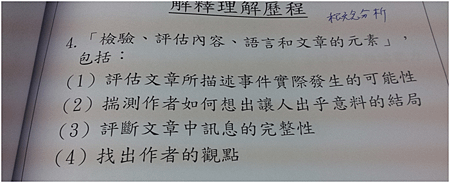 解釋理解歷程
4.「檢驗、評估內容、語言和文章的元素」,
包括:
(1) 評估文章所描述事件實際發生的可能性
(2) 揣測作者如何想出讓人出乎意料的結局
(3) 評斷文章中訊息的完整性
(4) 找出作者的觀點